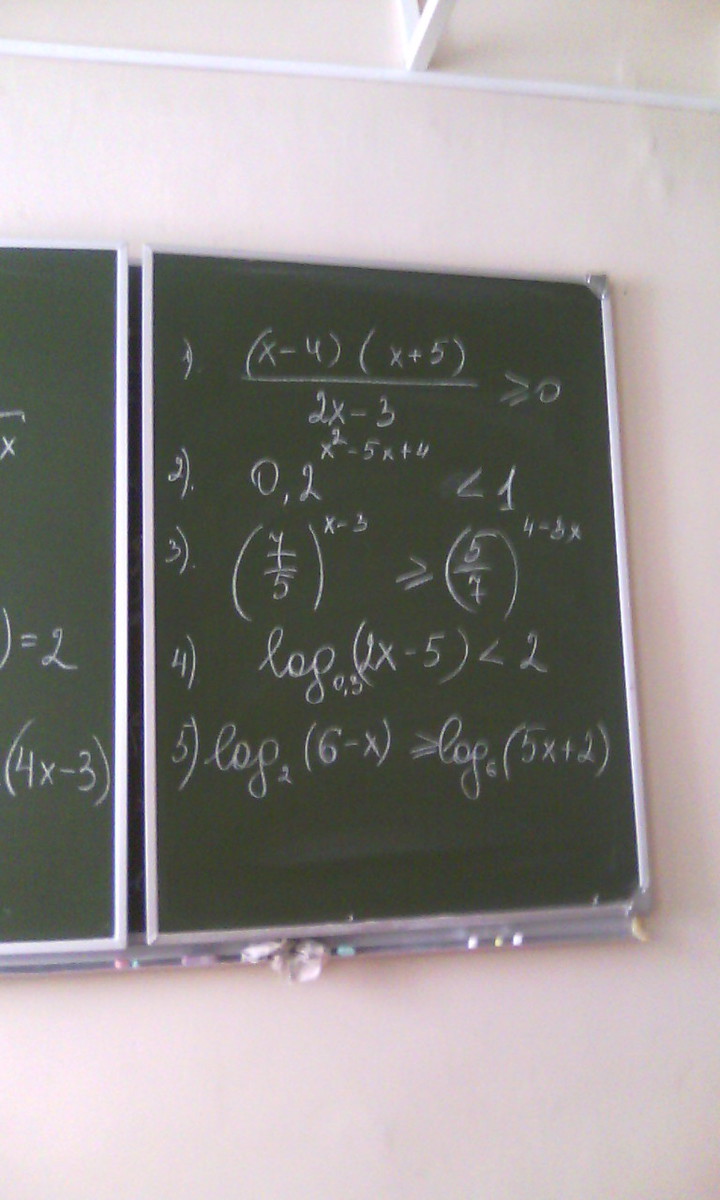 x
) = 2
(4x-3)
1). (x-4) ( x+5)
2x-3
≥0
2). 0,2^{x^2-5x+4} < 1
3). (7/5)^{x-3} ≥ (5/7)^{4-3x}
4) log_{0,3}(2x-5) < 2
5) log_2 (6-x) ≥ log_6 (5x+2)